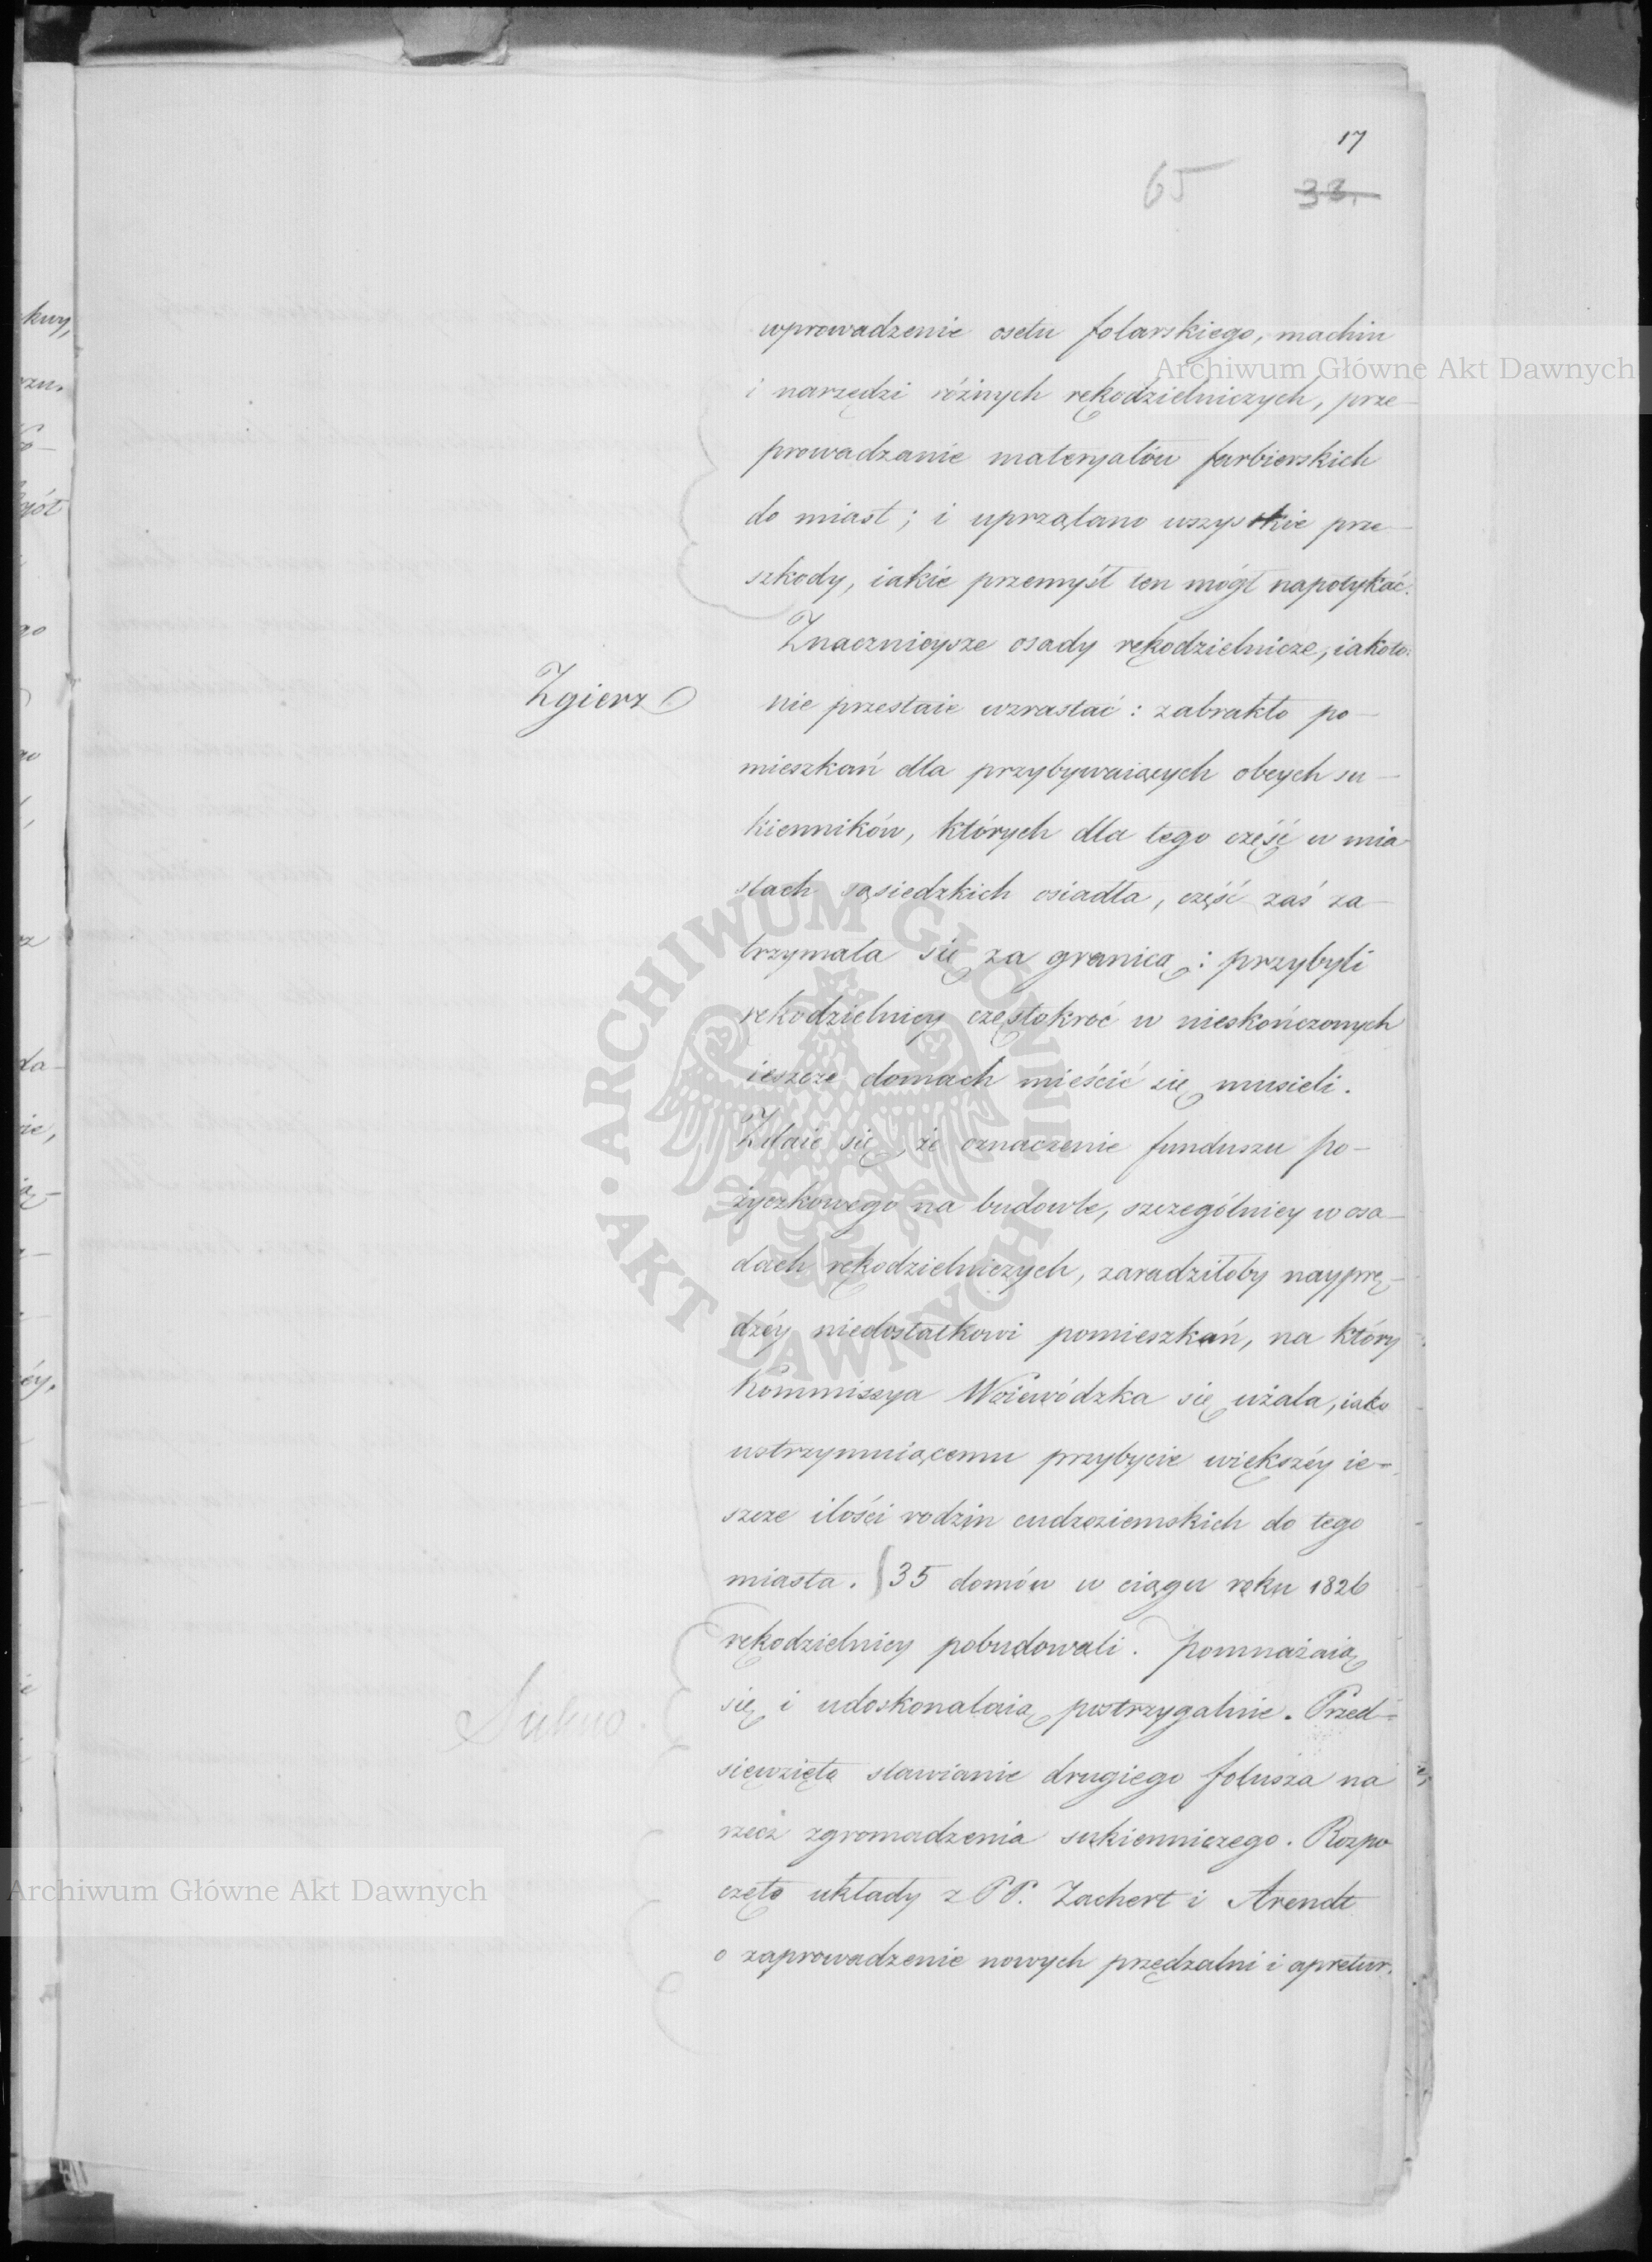 17
65 33.
wprowadzenie osetu folarskiego, machin
i narzędzi różnych rękodzielniczych, prze-
prowadzanie materyałów farbierskich
do miast; i uprzątano wszystkie prze-
szkody, iakie przemysł ten mógł napotykać.
Znacznieysze osady rękodzielnicze, iakoto:
Zgierz nie przestaie wzrastać: zabrakło po-
mieszkań dla przybywaiących obcych su-
kienników, których dla tego część w mia-
stach sąsiedzkich osiadła, część zaś za-
trzymała się za granicą: przybyli
rękodzielnicy częstokroć w nieskończonych
ieszcze domach mieścić się musieli.
Zdaie się, że oznaczenie funduszu po-
życzkowego na budowle, szczególniey w osa-
dach rękodzielniczych, zaradziłoby nayprę-
dzéy niedostatkowi pomieszkań, na który
Kommissya Woiewódzka się użala, iako
wstrzymuiącemu przybycie większéy ie-
szcze ilości rodzin cudzoziemskich do tego
miasta. 35 domów w ciągu roku 1826
rękodzielnicy pobudowali. Pomnażaią
Sukno.
się i udoskonalaią postrzygalnie. Przed-
sięwzięto stawianie drugiego folusza na
rzecz zgromadzenia sukienniczego. Rozpo
częto układy z PP. Zachert i Arendt
o zaprowadzenie nowych przędzalni i apretur.
Archiwum Główne Akt Dawnych
Archiwum Główne Akt Dawnych
ARCHIWUM GŁÓWNE AKT DAWNYCH